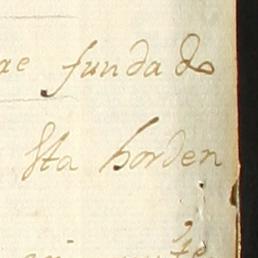 ae fundado
sta horden